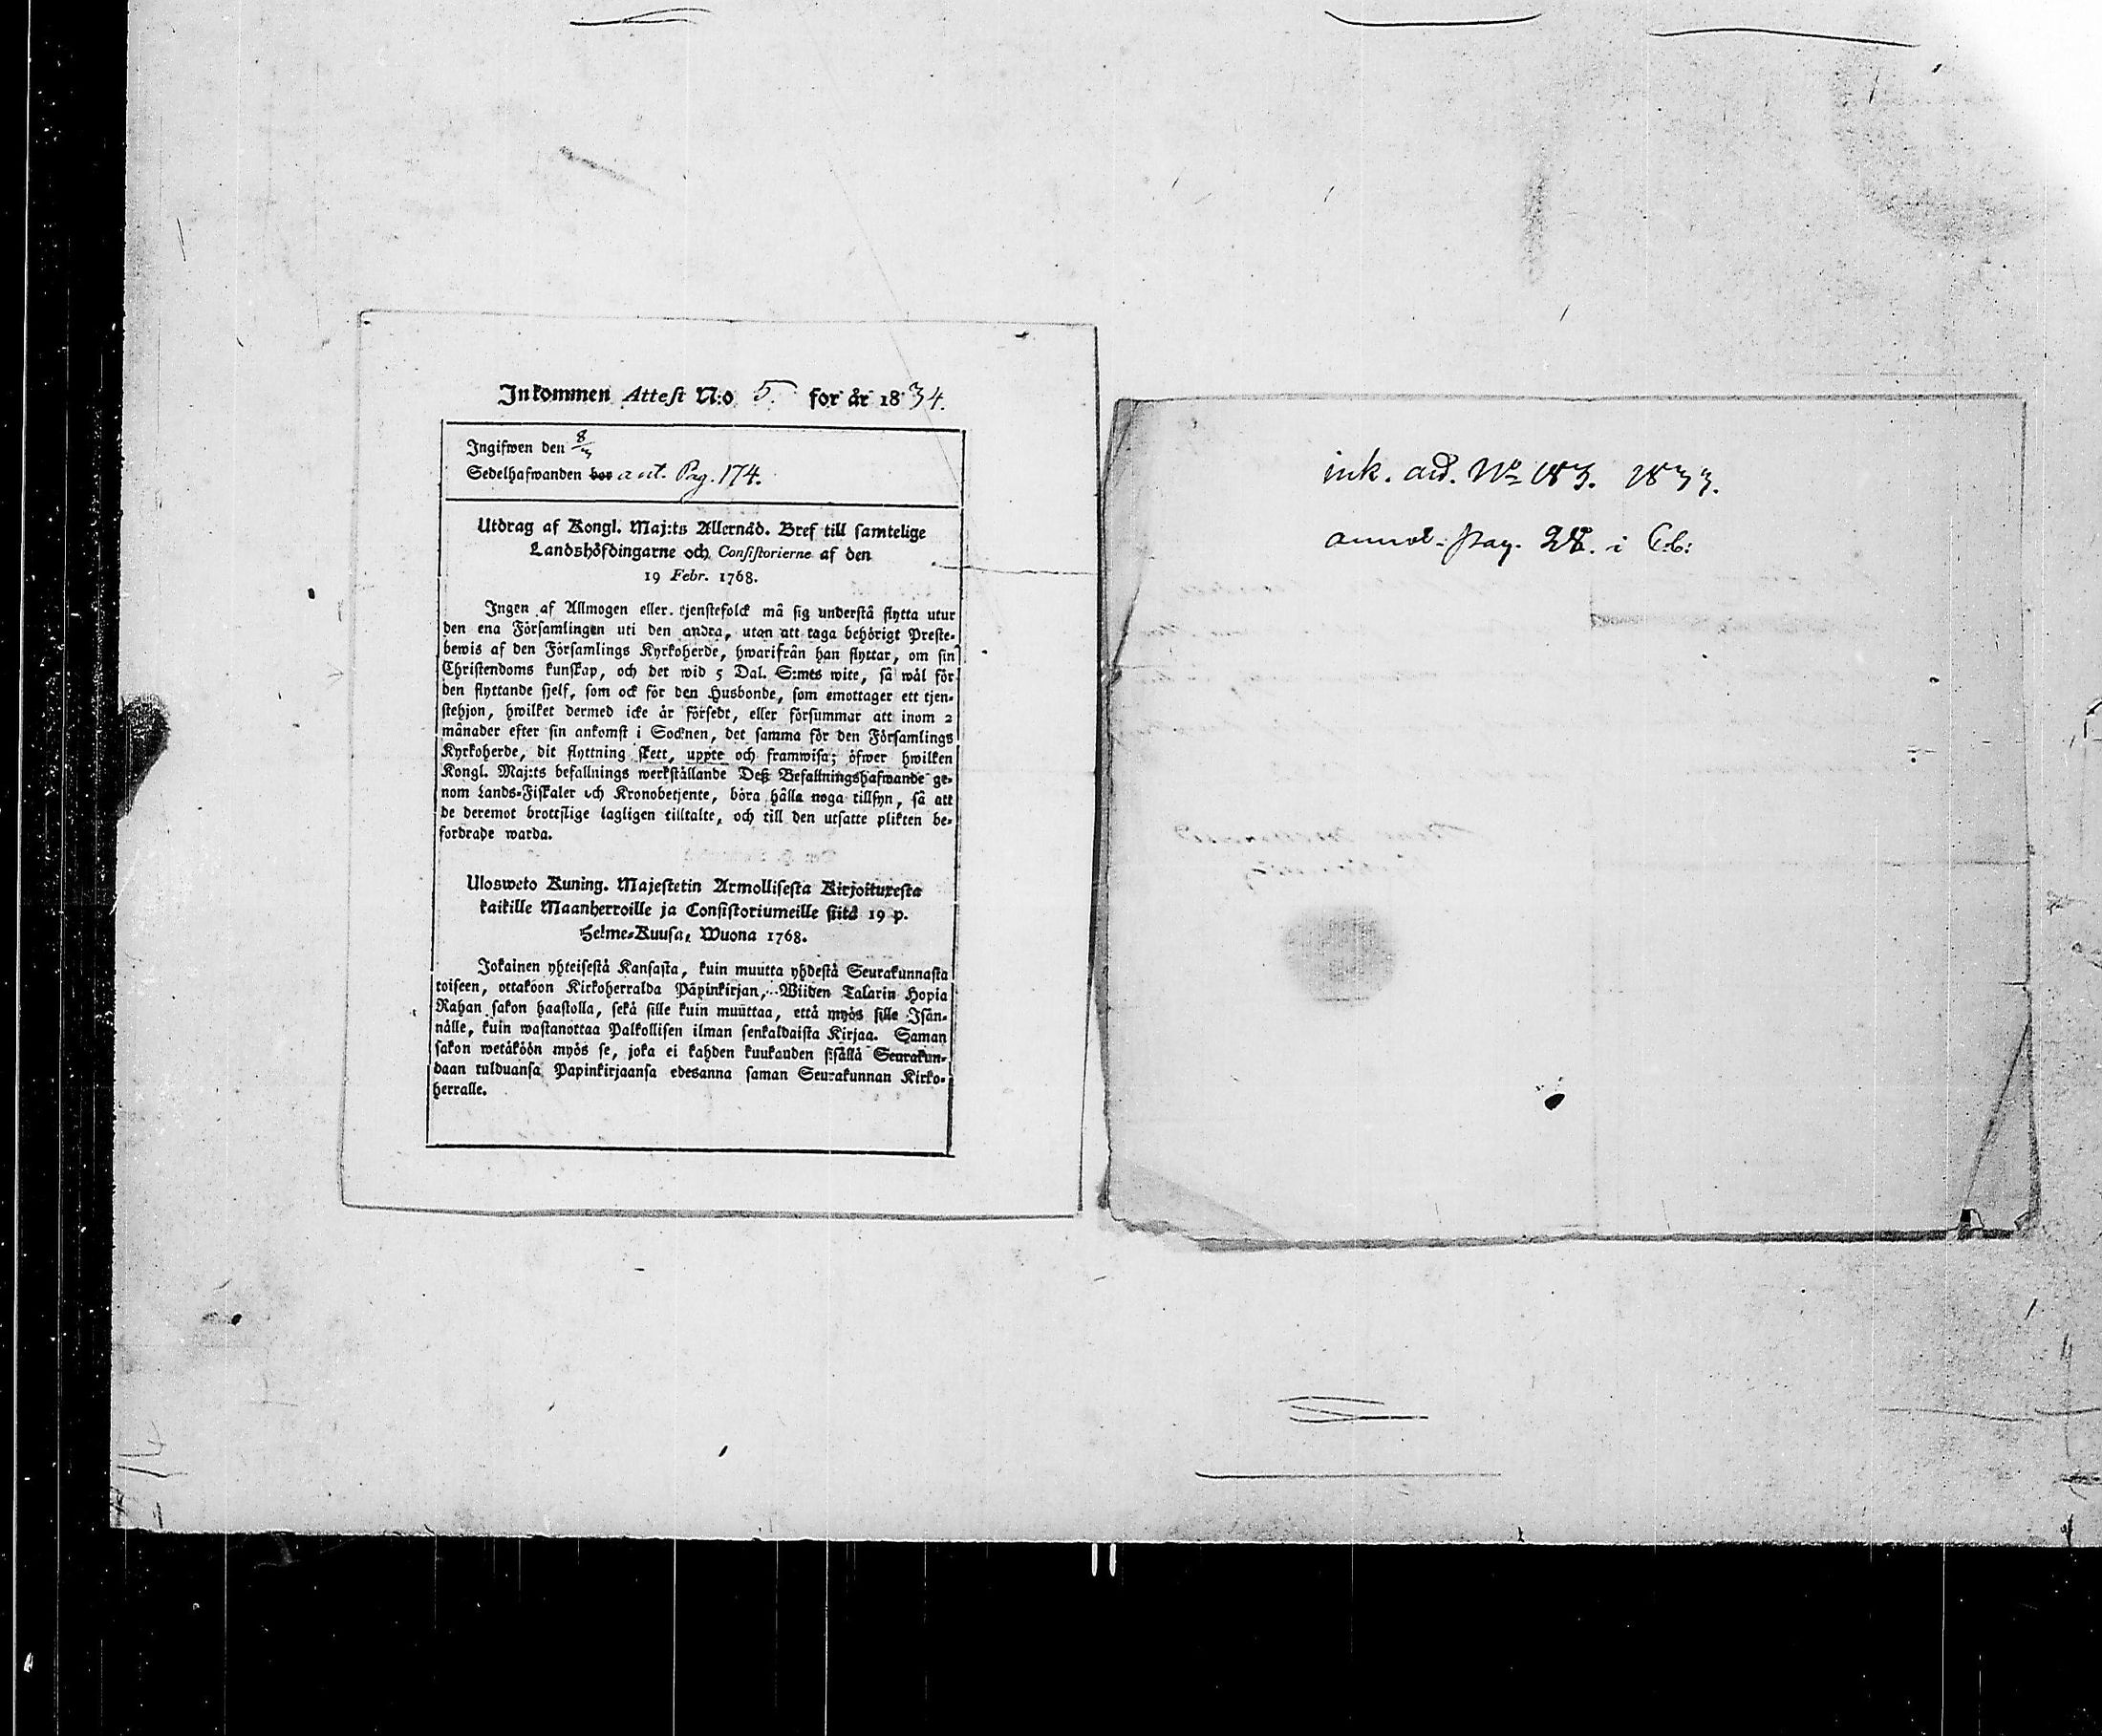 Inkommen Attest N:o 5. for år 1834.
Ingifwen den 8/3
Sedelhafwanden bor ant. Pag. 174.
Utdrag af Kongl. Maj:ts Allernåd. Bref till samtelige
Landshöfdingarne och Consistorierne af den
19 Febr. 1768.
Ingen af Allmogen eller tjenstefolck må sig understå flytta utur
den ena Församlingen uti den andra, utan att taga behörigt Preste-
bewis af den Församlings Kyrkoherde, hwarifrån han flyttar, om sin
Christendoms kunskap, och det wid 5 Dal. S:mts wite, så wäl för
den flyttande sjelf, som ock för den Husbonde, som emottager ett tjen-
stehjon, hwilket dermed icke är försedt, eller försummar att inom 2
månader efter sin ankomst i Socknen, det samma för den Församlings
Kyrkoherde, dit flyttning skett, uppte och framwisa; öfwer hwilken
Kongl. Maj:ts befallnings werkställande Deß Befallningshafwande ge-
nom Lands-Fiskaler och Kronobetjente, böra hålla noga tillsyn, så att
de deremot brottslige lagligen tilltalte, och till den utsatte plikten be-
fordrade warda.
Ulosweto Kuning. Majestetin Armollisesta Kirjoituxesta
kaikille Maanherroille ja Consistoriumeille siitä 19 p.
Helme-Kuusa, Wuona 1768.
Jokainen yhteisestä Kansasta, kuin muutta yhdestä Seurakunnasta
toiseen, ottakoon Kirkoherralda Päpinkirjan, Wiiden Talarin Hopia
Rahan sakon haastolla, sekä sille kuin muuttaa, että myös sille Isän-
nälle, kuin wastanottaa Palkollisen ilman senkaldaista Kirjaa. Saman
sakon wetäköön myös se, joka ei kahden kuukauden sisällä Seurakun-
daan tulduansa Papinkirjaansa edesanna saman Seurakunnan Kirko-
herralle.
ink. N:o 183. 1833.
annot. pag. 28. i C.b: